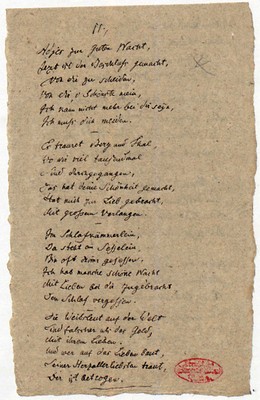 11.
Adjes zur guten Nacht,
Jezt ist der Beschluss gemacht,
Von dir zu scheiden,
Von dir o Schönste mein,
Ich kan nicht mehr bei dir seyn,
Ich muss dein meiden.
Es trauret Berg und Thal,
Wo wir viel tausendmal
Sind drüber gegangen,
Das hat deine Schönheit gemacht,
Hat mich zur Lieb gebracht,
Mit grossem Verlangen.
Im Schlafkämmerlein,
Da steht ein Sesselein
Bin oft drin gesessen.
Ich hab manche schöne Nacht
Mit Lieben bei dir zugebracht
Den Schlaf vergessen.
Die Weibsleut auf der Welt
Sind falscher als das Geld,
Mit ihrem Lieben.
Und wer auf das Lieben baut,
Seiner Herzallerliebsten traut,
Der ist betrogen.